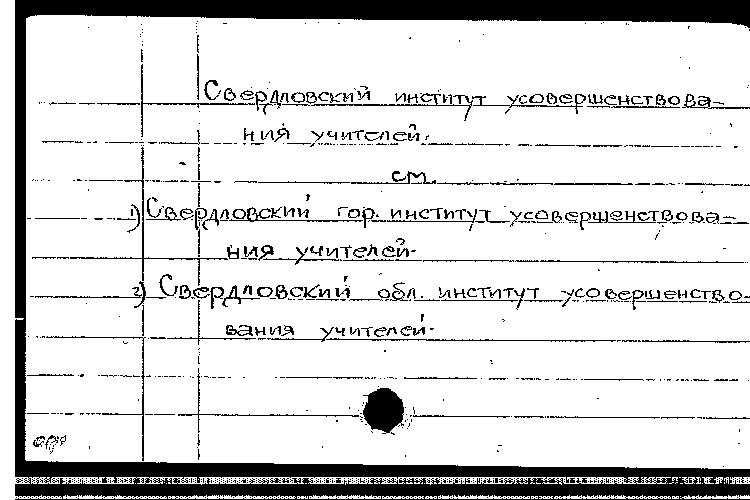 Свердловский институт усовершенствова-
ния учителей.
см.
1) Свердловский гор. институт усовершенствова-
ния учителей.
2) Свердловский обл. институт усовершенство-
вания учителей.